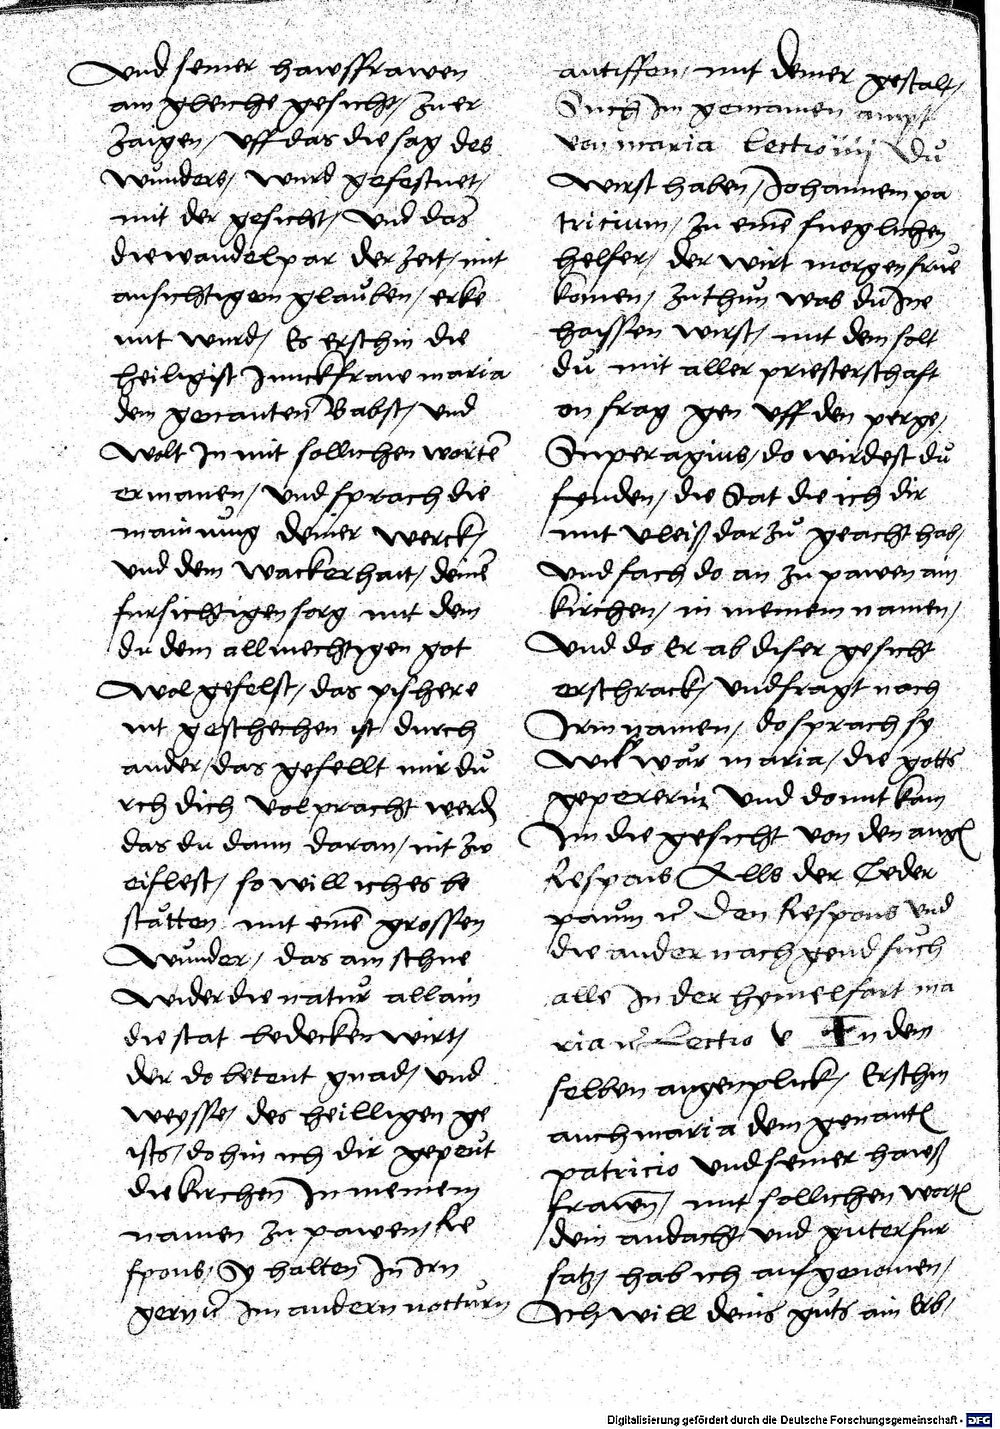 Und seiner hawsfrawen
ain gleiche gesicht, zu er
zaigen, uff das die sag des
wunders, wurd gefestnet,
mit der gesicht, Und das
die wandelpar der zeit, mit
ansichtigem glauben, erke
nnt wurd, Es erschin die
heiligist Junckfraw maria
dem genanten Babst, und
wolt In mit sollichen worten
ermanen, und sprach die
mainung deiner werck,
und dem wackerhait, deiner
fursichtigen sorg mit dem
du dem allmechtigen got
wol gefelst, das pishere
nit geschechen ist durch
ander, das gefellt mir du
rch dich volpracht werd
das du dann daran, nit zw
eiflest, so will ich es be
stätten mit einem grossen
wunder, das ain schne
wider die natur allain
die stat bedecken wirt,
der do betent gnad, und
weysse, des heilligen ge
ists, dohin ich dir gepeut
die kirchen In meinem
namen zu pawen, Re
spons, Sy halten In Irn
gern Im andern nocturn
antiffon, mit deiner gestalt,
Such Im gemainen ampt
von maria Lectio iiij Du
wirst haben, Johannem pa
tricium, zu einem fueglichen
helfer, der wirt morgen frue
komen, zu thun was du Ine
haissen wirst, mit dem solt
du mit aller priesterschaft
on frag gen uff den perge,
Superagius, do wirdest du
fynden, die Stat die ich dir
mit vleiß dar zu geacht hab,
und fach do an zu pawen ain
kirchen, in meinem namen,
Und do Er ab diser gesicht
erschrack, und fragt nach
Irm namen, do sprach sy
wie war maria, die gotts
gepererin Und domit kam
Im die gesicht von den augen
Respons Alls der Ceder
paum Den Respons und
die ander nach gend such
alle In der hymelfart ma
ria Lectio v In dem
selben augenplick, Erschin
auch maria dem genanten
patricio Und seiner hawß
frawen, mit sollichen worten
dein andacht und guter fur
satz, hab ich aufgenomen,
Ich will deins guts ain Erb,
Digitalisierung gefördert durch die Deutsche Forschungsgemeinschaft - DFG